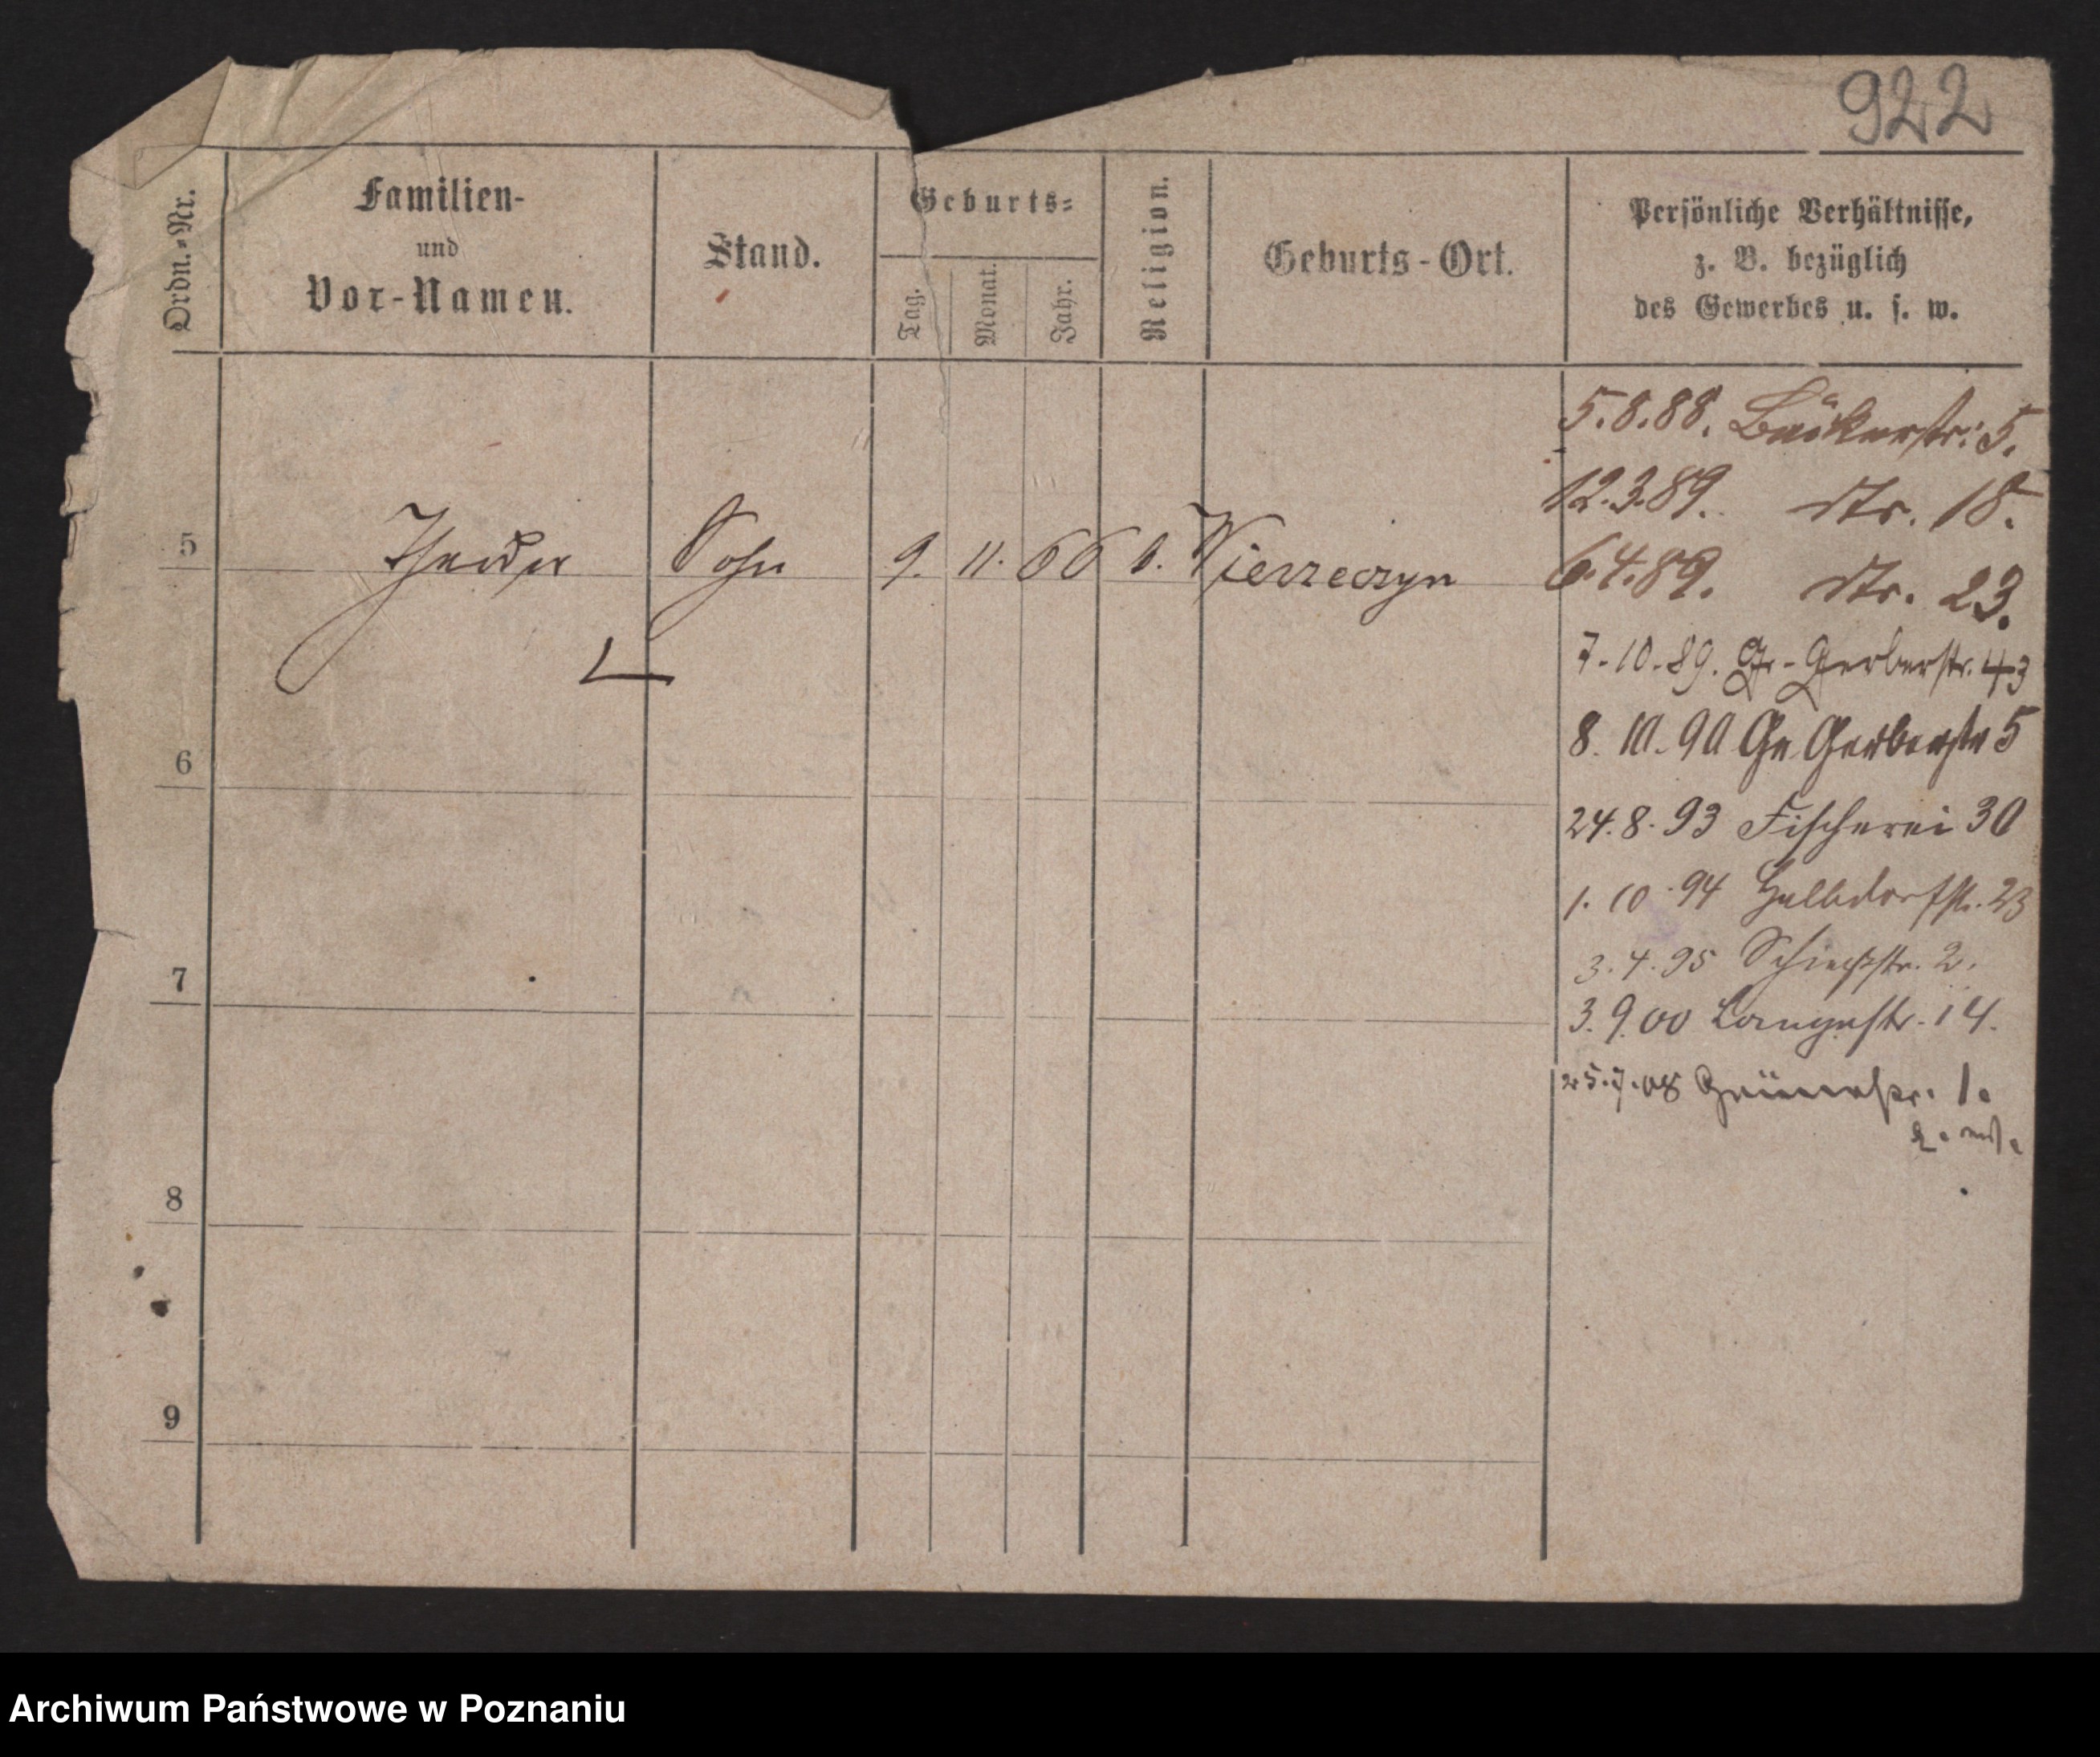 922
Ordn.=Nr.
Familien-
und
Vor-Namen.
Stand.
Geburts=
Tag.
Monat.
Jahr.
Religion.
Geburts-Ort.
Persönliche Verhältnisse,
z. B. bezüglich
des Gewerbes u. s. w.
5.8.88. Bäckerstr: 5.
12.3.89. dto. 18.
5 Theodor Sohn 9. 11. 66 Wierzeczyn
6.4.89. dto. 23.
7.10.89. Gr. Gerberstr. 43
8.10.90 Gr Gerberstr 5
6
24.8.93 Fischerei 30
1.10.94 Halbdorfstr. 23
3.4.95 Schießstr. 2.
7
3.9.00 Langestr. 14.
25.7.08 Grünestr. 1.
8
9
Archiwum Państwowe w Poznaniu